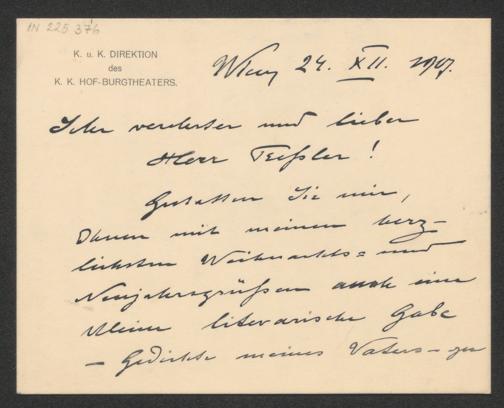 IN 225 376
K. u. K. DIREKTION
des
K. K. HOF-BURGTHEATERS.
Wien 24. XII. 1907.
Sehr verehrter und lieber
Herr Teßler!
Gestatten Sie mir,
Ihnen mit meinen herz-
lichsten Weihnachts= und
Neujahrsgrüßen auch eine
kleine literarische Gabe
— Gedichte meines Vaters — zu